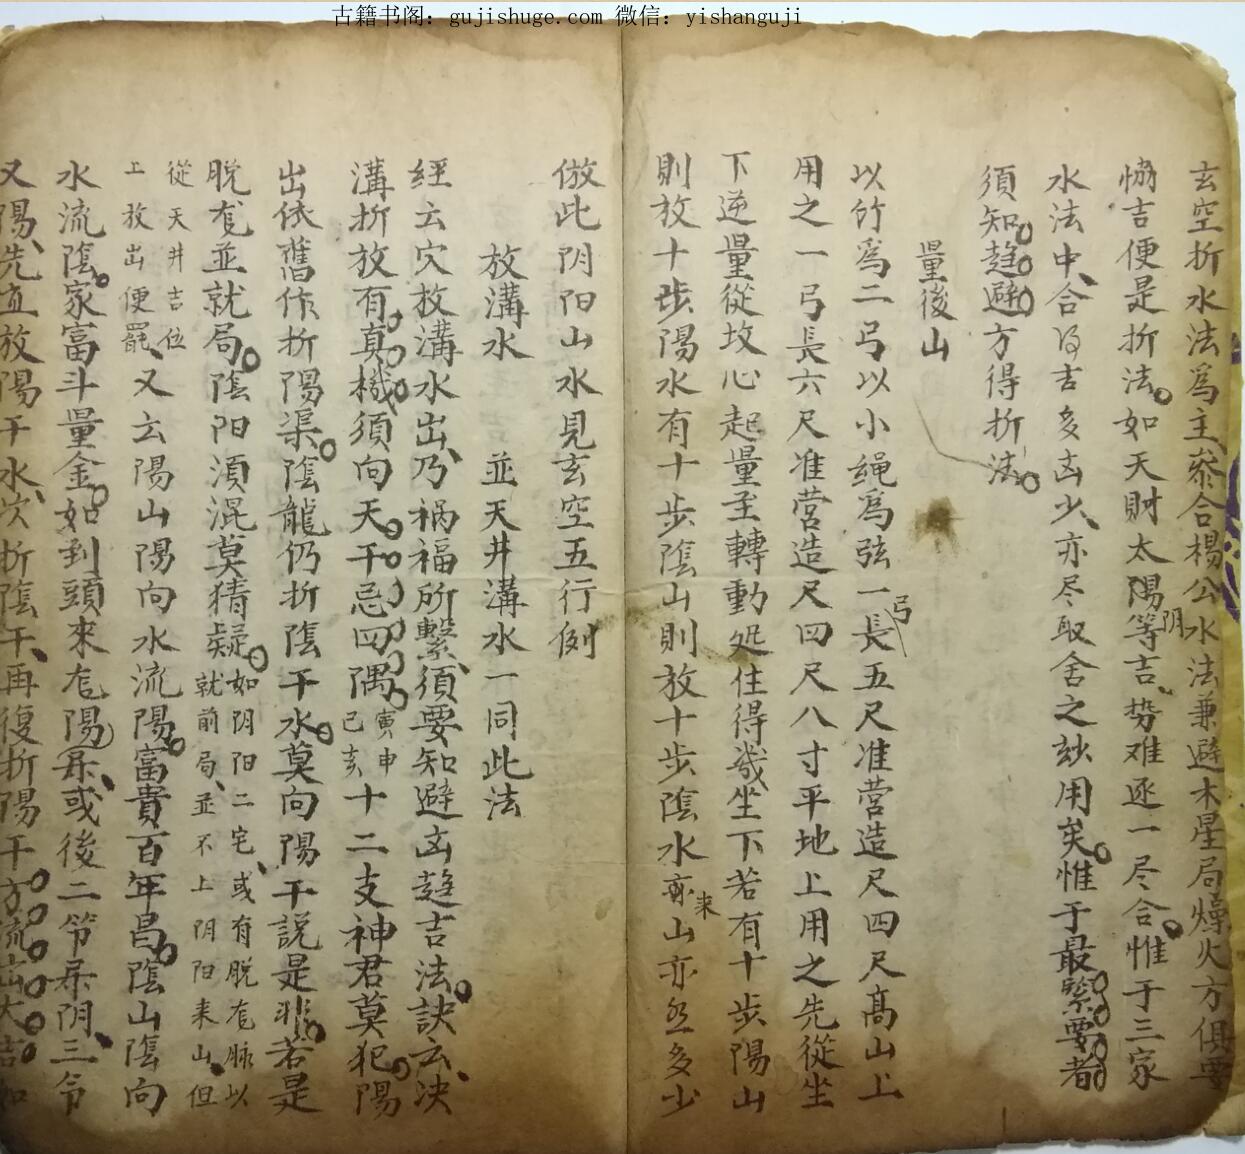 古籍书阁：gujishuge.com 微信：yishanguji
玄空折水法為主、叅合楊公水法兼避木星局燥火方俱要
恊吉便是折法。如天財太陽阴等吉、势难逐一尽合。惟于三家
水法中、合得吉多凶少、亦尽取舍之玅用矣。惟于最緊要者
須知趋避方得折法。
量後山
以竹為二弓以小绳為弦一弓長五尺准营造尺四尺高山上
用之一弓長六尺准营造尺四尺八寸平地上用之先從坐
下逆量從坟心起量至轉動处住得幾坐下若有十步陽山
則放十步陽水有十步陰山則放十步陰水來山亦然多少
倣此阴阳山水見玄空五行例
放溝水 並天井溝水一同此法
經云穴放溝水出、乃禍福所繫、須要知避凶趋吉法。訣云、决
溝折放有真機須向天干忌四隅寅申巳亥十二支神君莫犯。陽
出依舊作折陽渠。陰龍仍折陰干水。莫向陽干説是非。若是
脱厐並就局。陰阳須混莫猜疑。如阴阳二宅、或有脱厐脉以
就前局、並不上阴阳来山、但
從天井吉位
上放出便罷、又云陽山陽向水流陽。富貴百年昌。陰山陰向
水流陰。家富斗量金。如到頭來厐陽㭍、或後二节㭍阴、三令
又陽、先宜放陽干水、次折陰干、再復折陽干方流出大吉如